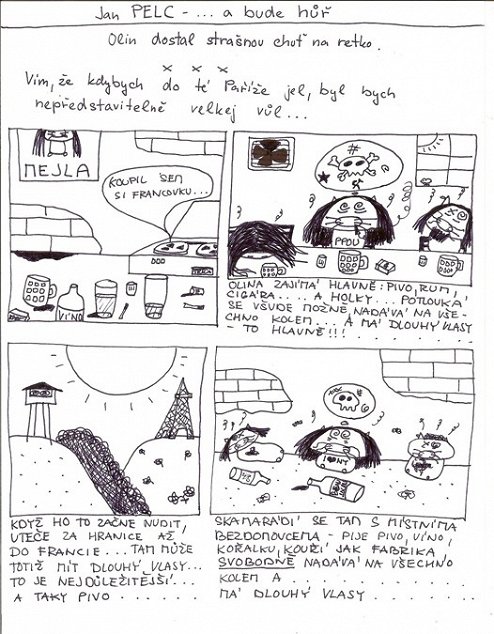 Jan PELC - ... a bude hůř
Olin dostal strašnou chuť na retko.
x x x
Vím, že kdybych do té Paříže jel, byl bych
nepředstavitelně velkej vůl...
MEJLA
KOUPIL SEM
SI FRANCOVKU...
VÍNO
PPDU
OLINA ZAJÍMÁ HLAVNĚ: PIVO, RUM,
CIGÁRA..... A HOLKY... POTLOUKÁ
SE VŠUDE MOŽNĚ, NADÁVÁ NA VŠE-
CHNO KOLEM... A MÁ DLOUHÝ VLASY
- TO HLAVNĚ!!! . . . . . . . . . .
KDYŽ HO TO ZAČNE NUDIT,
UTEČE ZA HRANICE AŽ
DO FRANCIE... TAM MŮŽE
TOTIŽ MÍT DLOUHÝ VLASY...
TO JE NEJDŮLEŽITĚJŠÍ...
A TAKY PIVO . . . . . . .
I NY
SKAMARÁDÍ SE TAM S MÍSTNÍMA
BEZDOMOVCEMA - PIJE PIVO, VÍNO,
KOŘALKU, KOUŘÍ JAK FABRIKA,
SVOBODNĚ NADÁVÁ NA VŠECHNO
KOLEM A . . . . . . . . . . . . .
MÁ DLOUHÝ VLASY . . . . . . . . .